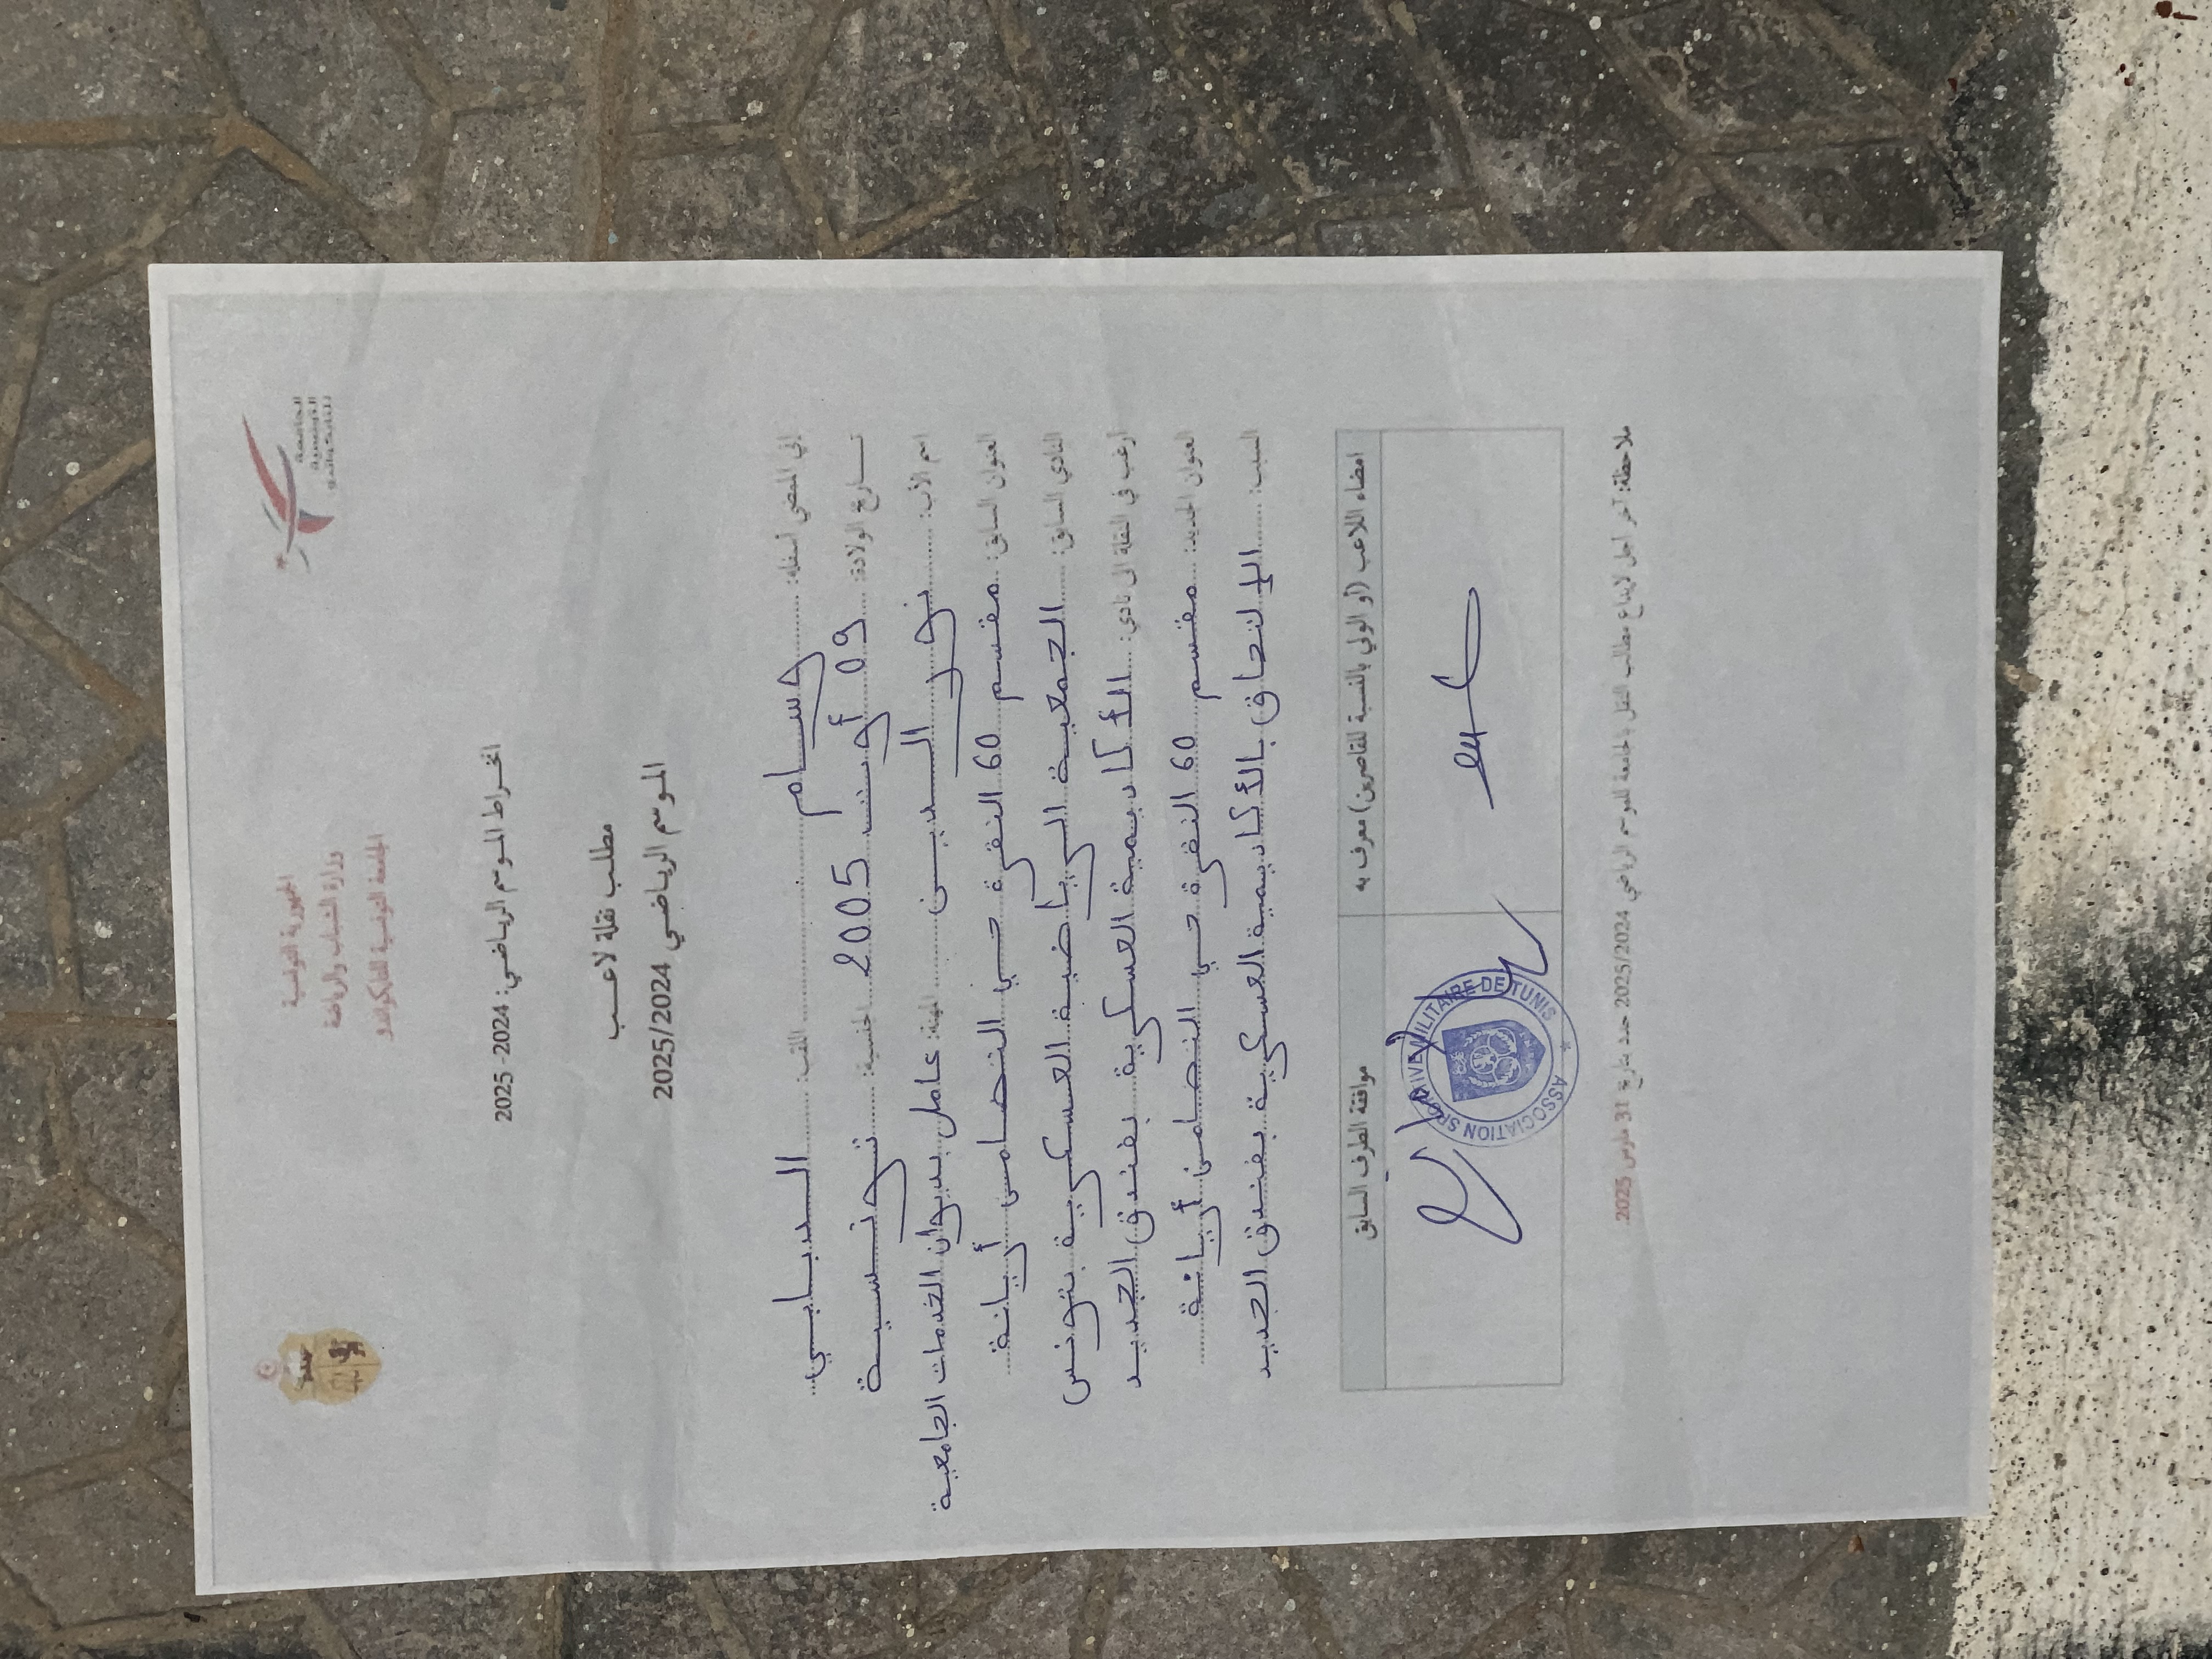 الجمهورية التونسية
وزارة الشباب والرياضة
الجامعة التونسية للتايكواندو
الجامعة
التونسية
للتايكواندو
انخراط الموسم الرياضي: 2024-2025
مطلب نقلة لاعب
الموسم الرياضي 2025/2024
إني الممضي أسفله: وسام اللقب: الدبابي
تاريخ الولادة: 09 أوت 2005 الجنسية: تونسية
اسم الأب: نور الدين المهنة: عامل بديوان الخدمات الجامعية
العنوان السابق: مقسم 60 النقرة حي التضامن أريانة
النادي السابق: الجمعية الرياضية العسكرية بتونس
أرغب في النقلة الى نادي: الأكاديمية العسكرية بفندق الجديد
العنوان الجديد: مقسم 60 النقرة حي التضامن أريانة
السبب: الإلتحاق بالأكاديمية العسكرية بفندق الجديد
امضاء اللاعب (أو الولي بالنسبة للقاصرين) معرف به موافقة الطرف السابق
ASSOCIATION SPORTIVE MILITAIRE DE TUNIS
ملاحظة: آخر أجل لإيداع مطالب النقل بالجامعة للموسم الرياضي 2025/2024 حدد بتاريخ 31 مارس 2025